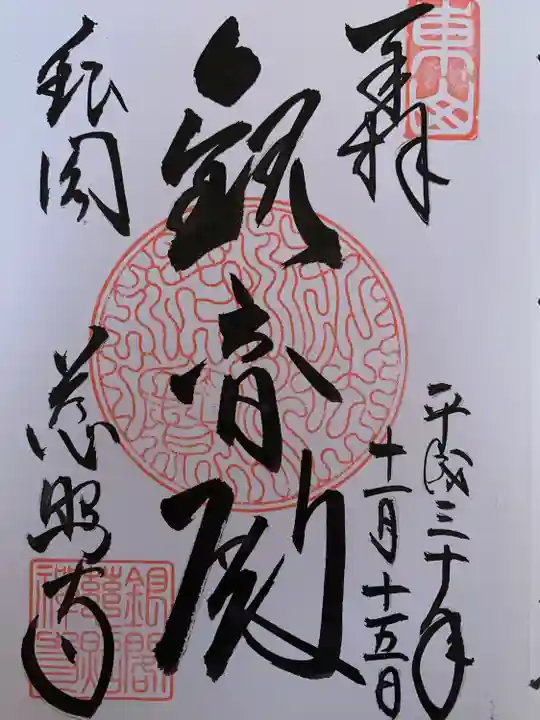 東山
奉拝
平成三十年
十一月十五日
観音殿
銀閣
慈照寺